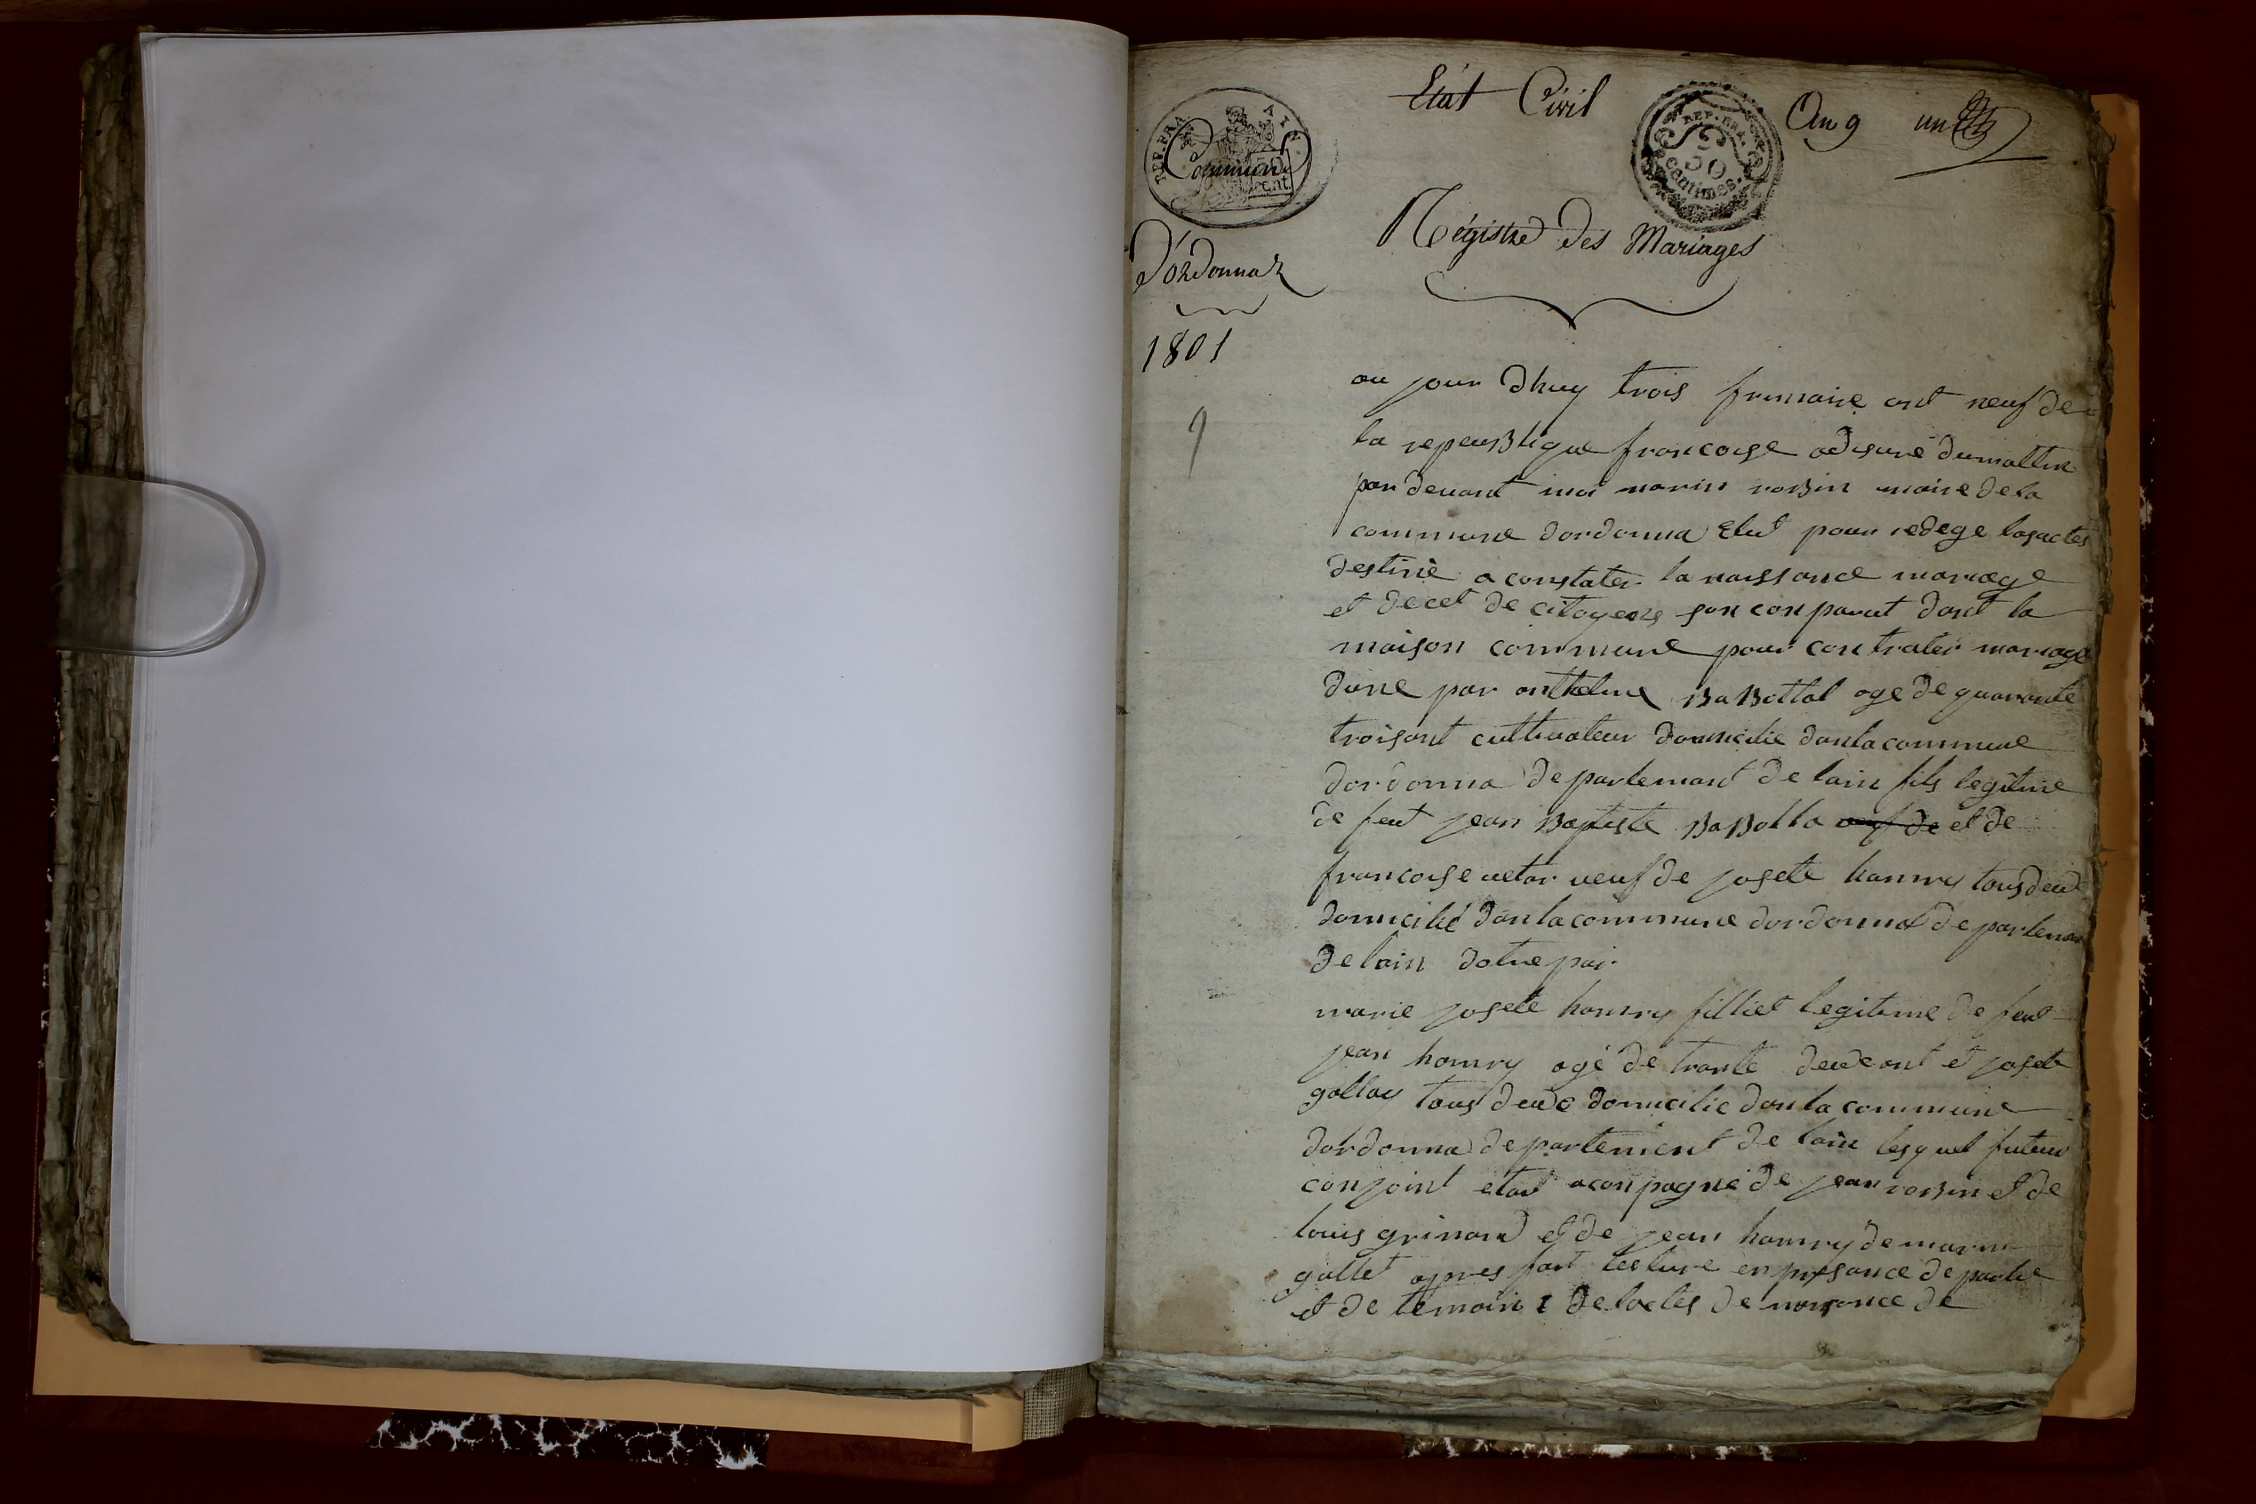 Etat Civil
An 9 un
REP. FRA.
50
centimes.
REP. FRA AIN.
Commune
D'ordonnaz
1801
9
Régistre des Mariages
au jour dhuy trois frimaire ant neuf de
la repeublique francoise adisure dumattin
par devant moi marin robin maire de la
commune dordonna Elut pour redege lasactes
destiné a constater la naissance mariage
et decet de citoyens son conparut dant la
maison commune pour contrater mariage
dune par anthelme Babollat age de quarante
troisant cultivateur domicilie danlacommune
dordonna departemant de lain fils legitime
de feut jean Baptiste Babolla veuf de et de
francoise veuf de josete hanry tousdeud
domicilié danlacommune dordonna departeman
de lain dotre par
marie josete hanry filliet legitime de feut
jean hanry agé de trante deuxant et josete
gallay tous deuxe domicilie danlacommune
dordonna departement de lain lesquel futeur
conjoint etant aconpagné de jean robin et de
louis grinand et de jean hanry de marin
gallet apres fait lecture enpresance de partie
et de temoin 1 de lactes de naisance de